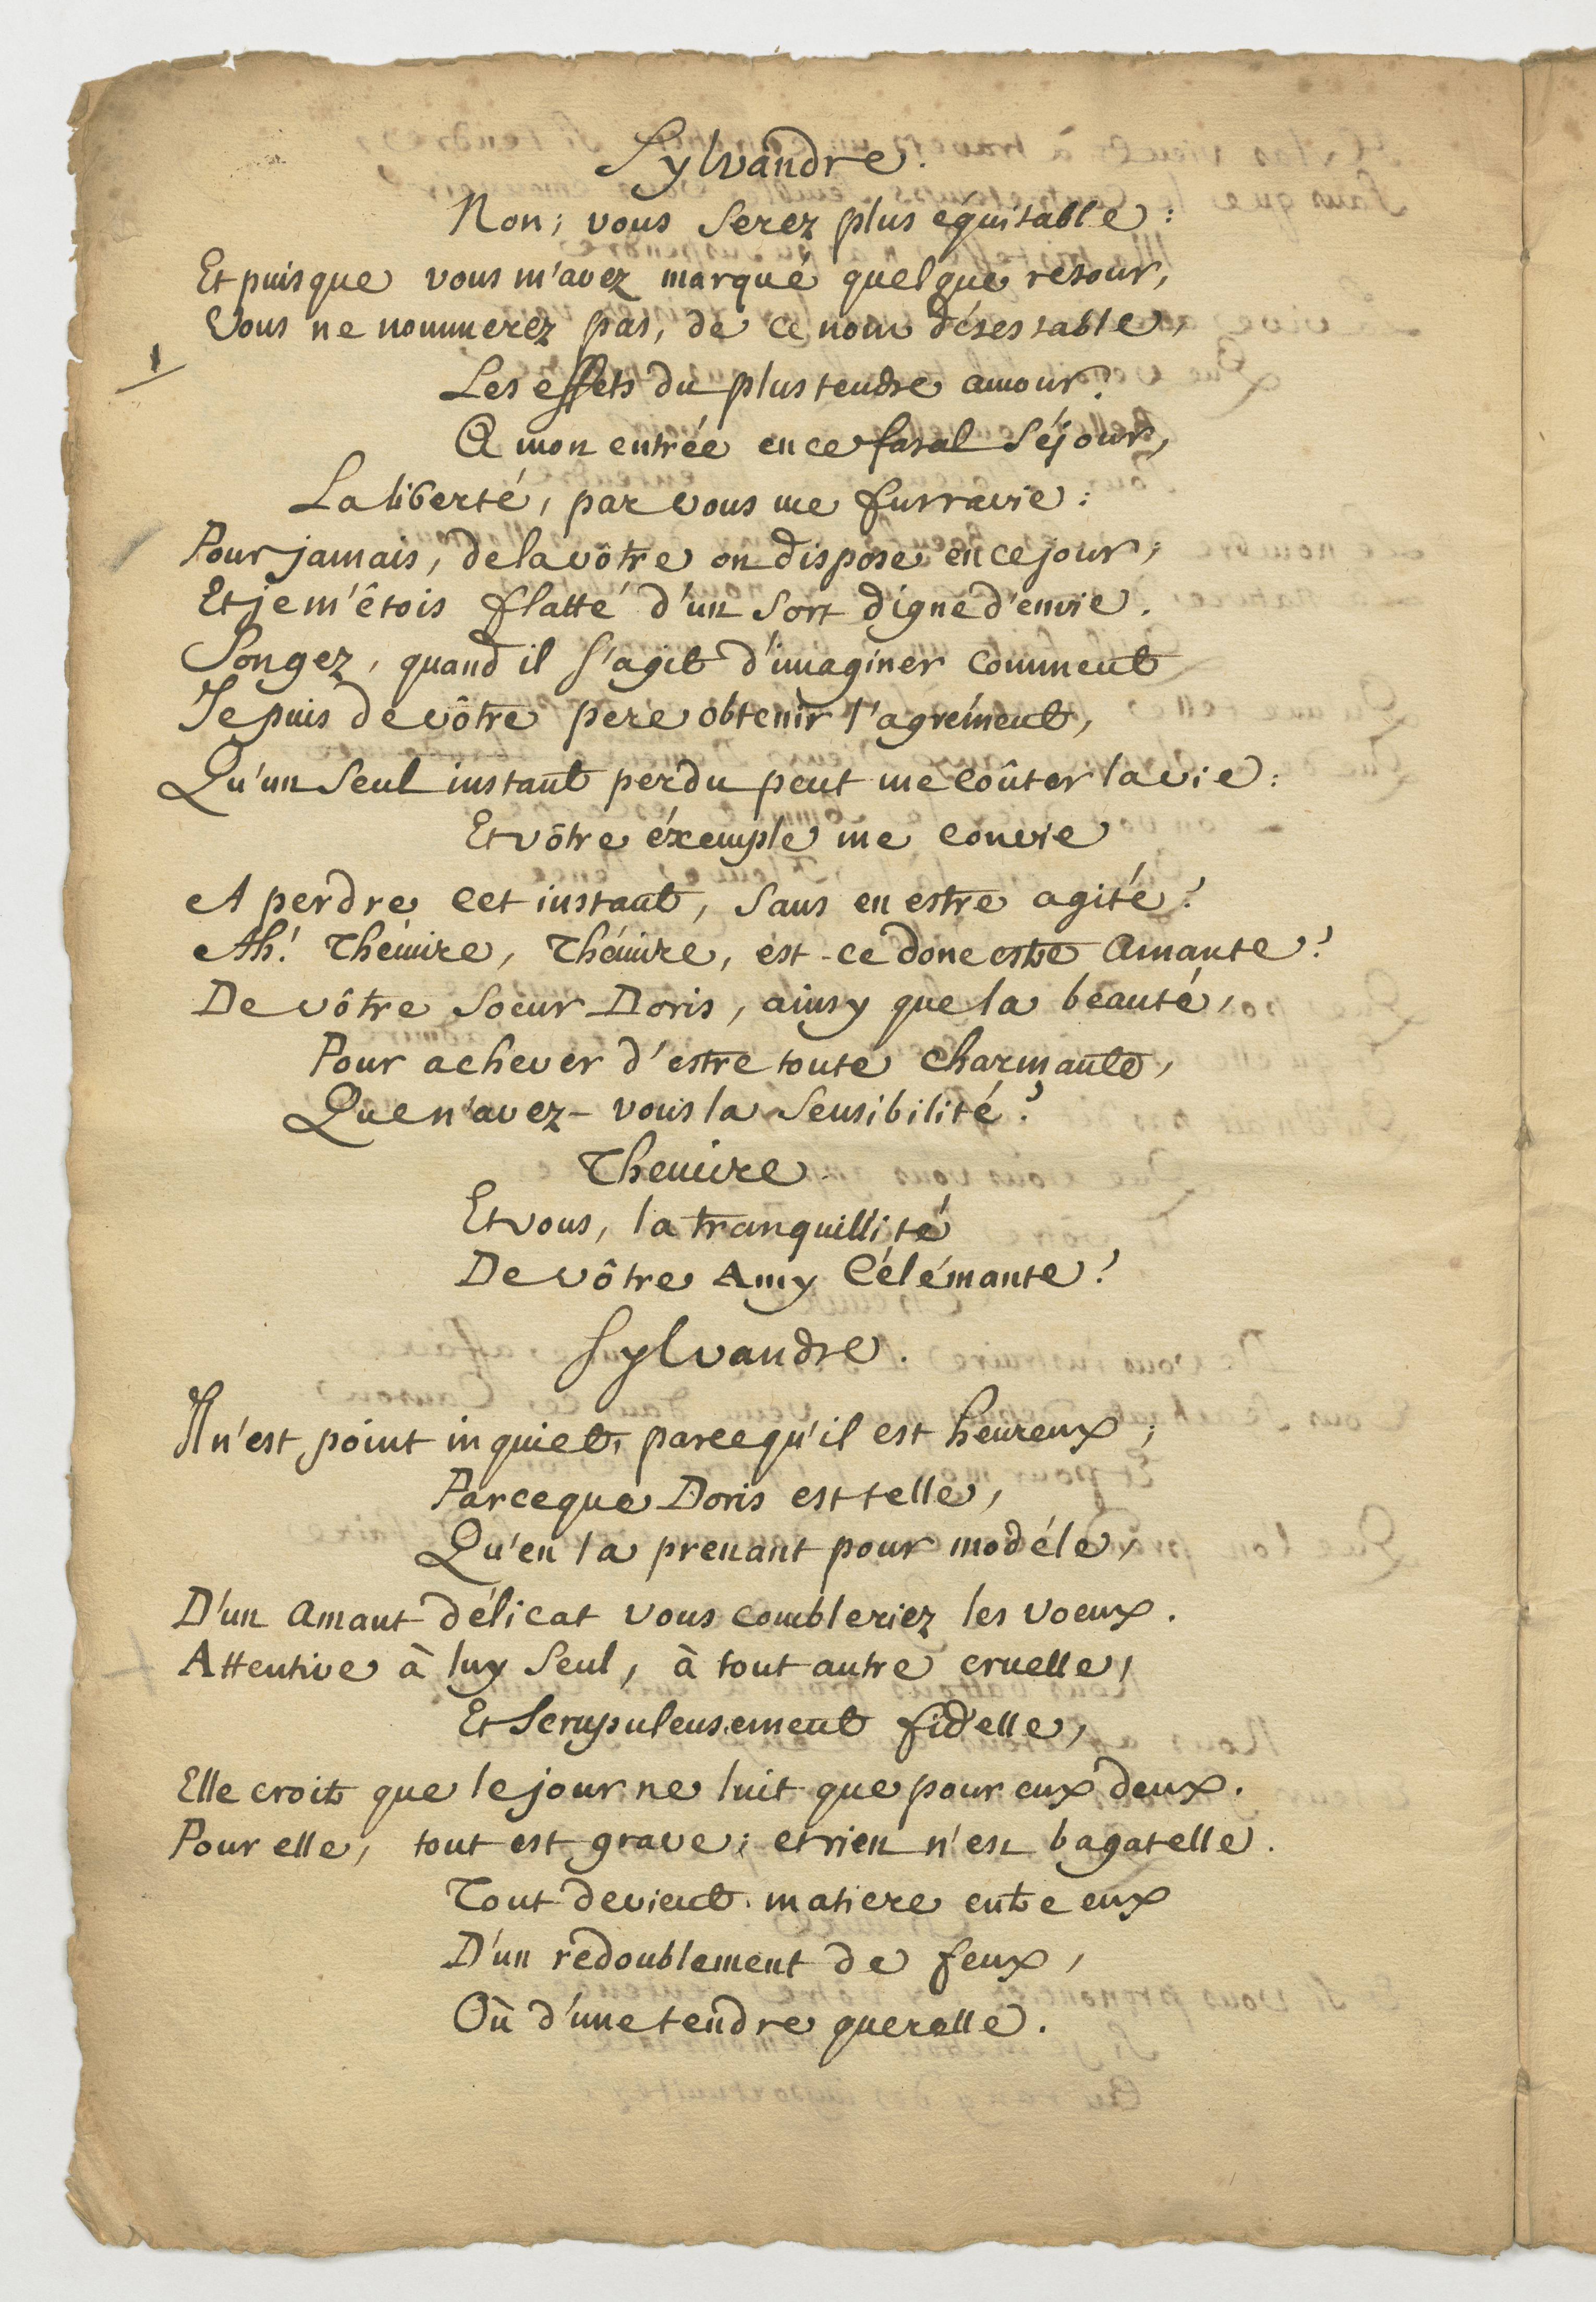 Sylvandre.
Non; vous serez plus équitable:
Et puisque vous m'avez marqué quelque retour,
Vous ne nommerez pas, de ce nom détestable,
Les effets du plus tendre amour?
A mon entrée en ce fatal séjour,
La liberté, par vous me fut ravie:
Pour jamais, de la vôtre on dispose en ce jour;
Et je m'êtois flatté d'un sort digne d'envie.
Songez, quand il s'agit d'imaginer comment
Je puis de vôtre pere obtenir l'agrément,
Qu'un seul instant perdu peut me coûter la vie:
Et vôtre éxemple me convie
A perdre cet instant, sans en estre agité!
Ah! Thémire, Thémire, est-ce donc estre Amante?
De vôtre Soeur Doris, ainsy que la beauté,
Pour achever d'estre toute charmante,
Que n'avez-vous la sensibilité?
Themire
Et vous, la tranquillité
De vôtre Amy Célémante!
Sylvandre.
Il n'est point inquiet, parcequ'il est heureux;
Parceque Doris est telle,
Qu'en la prenant pour modéle,
D'un Amant délicat vous combleriez les voeux.
Attentive à luy seul, à tout autre cruelle,
Et scrupuleusement fidelle,
Elle croit que le jour ne luit que pour eux deux.
Pour elle, tout est grave; et rien n'est bagatelle.
Tout devient matiere entre eux
D'un redoublement de feux,
Où d'une tendre querelle.